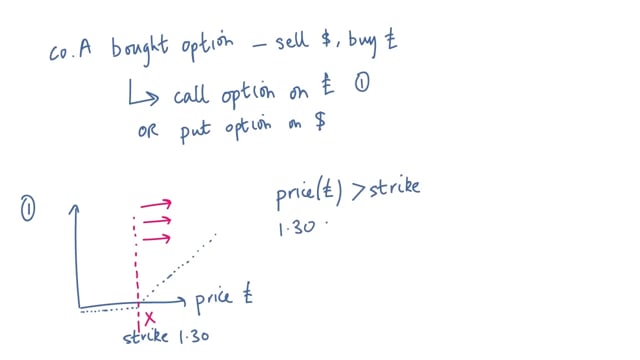 co.A bought option – sell $, buy £
↳ call option on £ ①
OR put option on $
①
price(£) > strike
1.30
price £
X
strike 1.30